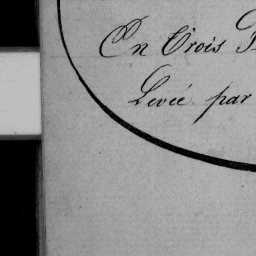 En Trois
Levée par